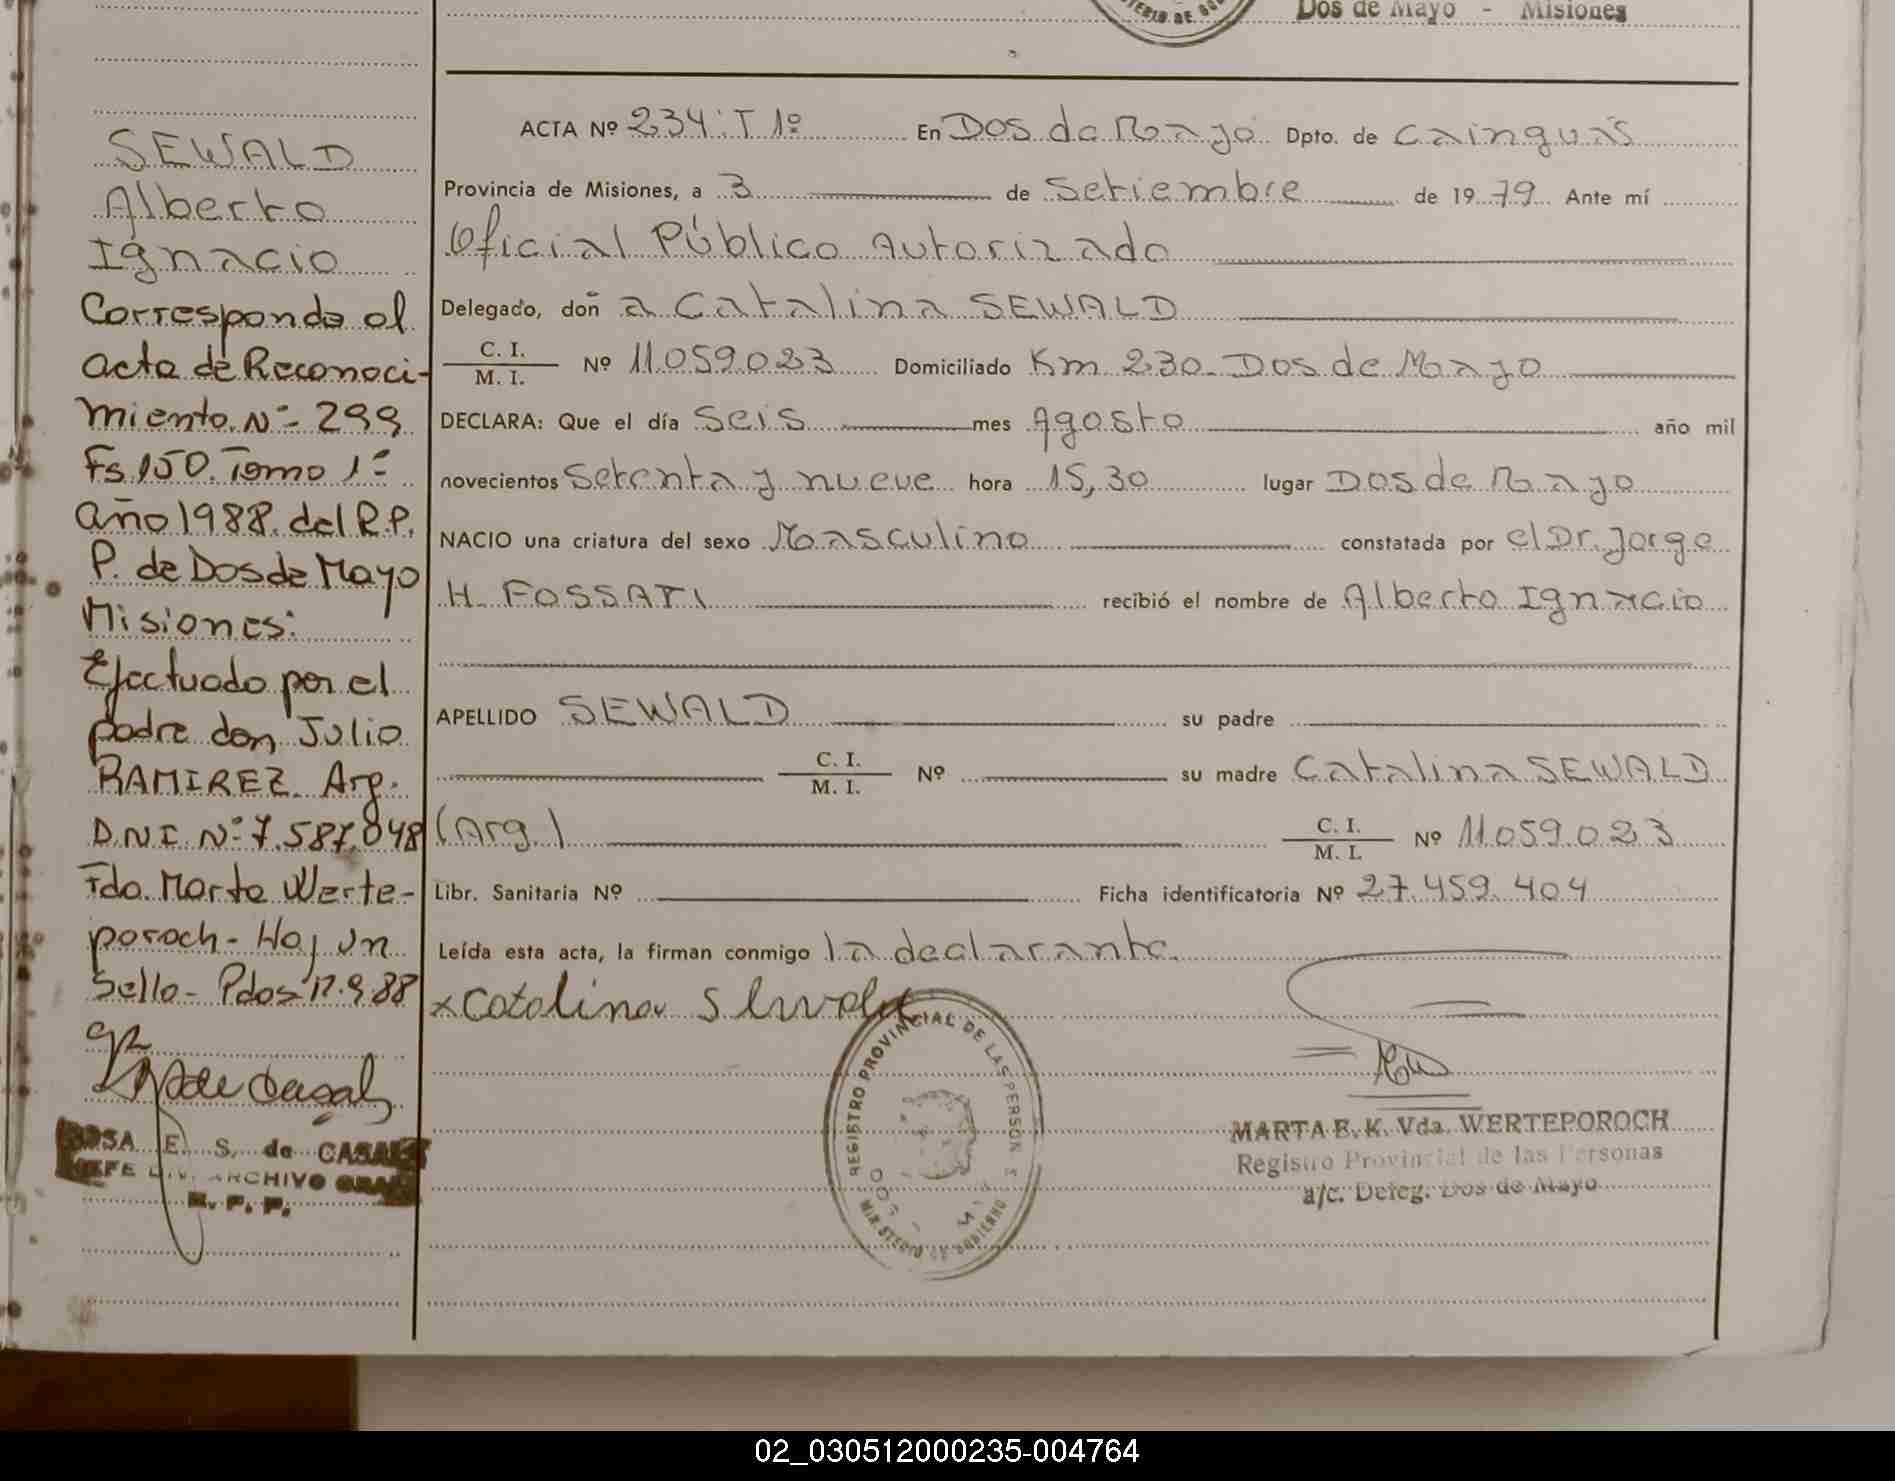 Dos de Mayo - Misiones
SEWALD
Alberto
Ignacio
Corresponde al
acta de Reconoci-
miento. Nº 299
Fs 150. Tomo 1º
año 1988. del R.P.
P. de Dos de Mayo
Misiones:
Efectuado por el
padre don Julio
RAMIREZ. Arg.
D.N.I. Nº 7.587.048
Fdo. Marta Werte-
poroch - Hay un
Sello - Pdas 12.9.88
ROSA E. S. de CASALS
JEFE DIV. ARCHIVO GRAL
R. P. P.
ACTA Nº 234 T 1º En Dos de Mayo Dpto. de Cainguás
Provincia de Misiones, a 3 de Setiembre de 1979 Ante mí
Oficial Público Autorizado
Delegado, doñ a Catalina SEWALD
C. I.
M. I. Nº 11.059.023 Domiciliado Km 230 - Dos de Mayo
DECLARA: Que el día Seis mes Agosto año mil
novecientos Setenta y nueve hora 15,30 lugar Dos de Mayo
NACIO una criatura del sexo Masculino constatada por el Dr. Jorge
H. FOSSATI recibió el nombre de Alberto Ignacio
APELLIDO SEWALD su padre
C. I.
M. I. Nº su madre Catalina SEWALD
(Arg.) C. I.
M. I. Nº 11.059.023
Libr. Sanitaria Nº Ficha identificatoria Nº 27.459.404
Leída esta acta, la firman conmigo la declarante.
x Catalina Sewald
REGISTRO PROVINCIAL DE LAS PERSONAS
MINISTERIO DE GOBIERNO
MARTA E. K. Vda. WERTEPOROCH
Registro Provincial de las Personas
a/c. Deleg. Dos de Mayo
02_030512000235-004764